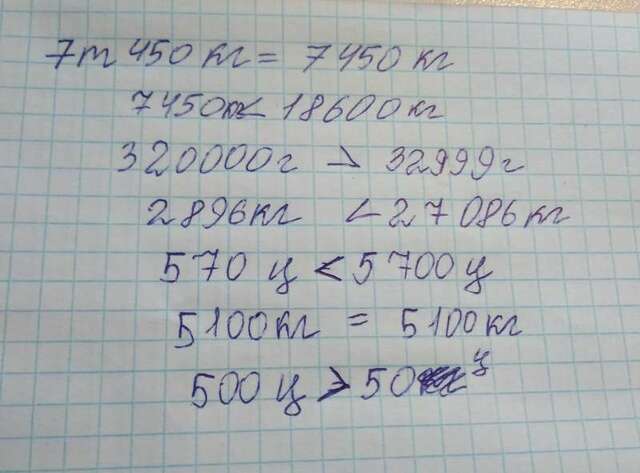 7т 450 кг = 7450 кг
7450к < 18600кг
320000г > 32999г
2896кг < 27086кг
570 ц < 5700 ц
5100кг = 5100кг
500 ц > 50 ц